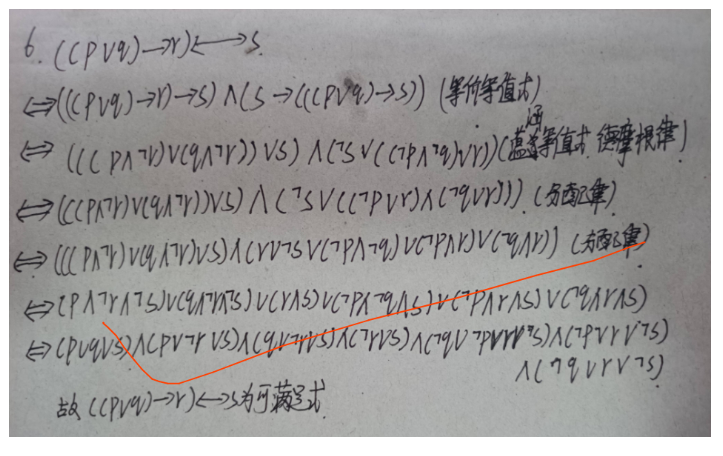 6. ((p∨q)→r)↔s.
⇔(((p∨q)→r)→s)∧(s→(((p∨q)→s)) (等价等值式)
⇔ (((p∧¬r)∨(q∧¬r))∨s)∧(¬s∨((¬p∧¬q)∨r))(蕴涵等值式.德摩根律)
⇔(((p∧¬r)∨(q∧¬r))∨s)∧(¬s∨((¬p∨r)∧(¬q∨r))) (分配律)
⇔(((p∧¬r)∨(q∧¬r)∨s)∧(r∨¬s∨(¬p∧¬q)∨(¬p∧r)∨(¬q∧r)) (分配律)
⇔(p∧¬r∧¬s)∨(q∧¬r∧¬s)∨(r∧s)∨(¬p∧¬q∧s)∨(¬p∧r∧s)∨(¬q∧r∧s)
⇔(p∨q∨s)∧(p∨¬r∨s)∧(q∨¬r∨s)∧(¬r∨s)∧(¬q∨¬p∨r∨¬s)∧(¬p∨r∨¬s)
∧(¬q∨r∨¬s)
故((p∨q)→r)↔s为可满足式.